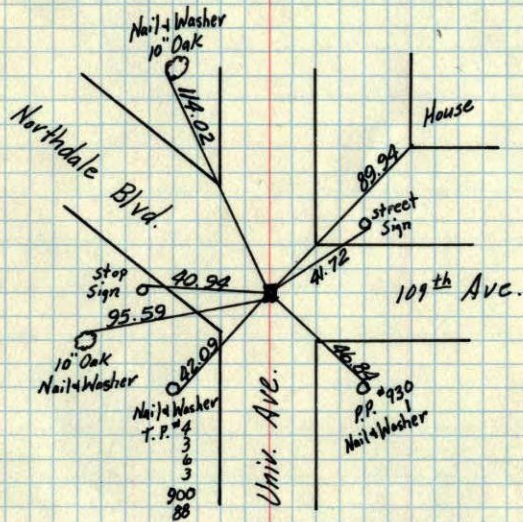 Nail & Washer
10" Oak
114.02
Northdale Blvd.
House
89.94
street
Sign
41.72
109th Ave.
Stop
Sign
40.94
95.59
10" Oak
Nail & Washer
42.09
Nail & Washer
T.P. #4
3
6
3
900
88
Univ. Ave.
46.84
P.P. #930
1
Nail & Washer